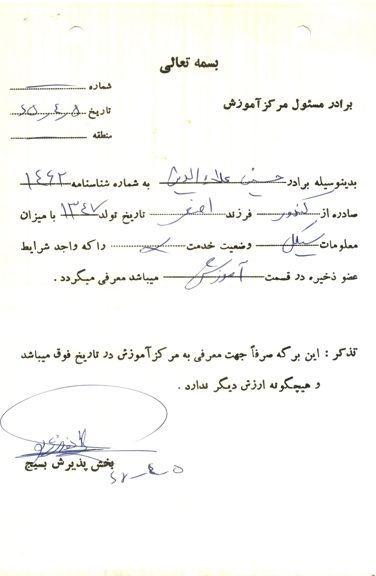 بسمه تعالی
شماره
برادر مسئول مرکز آموزش
تاریخ ۶۵-۴-۵
منطقه
بدینوسیله برادر حسین علاءالدینی به شماره شناسنامه ۱۴۶۲
صادره از کنگور فرزند اصغر تاریخ تولد ۱۳۴۷ با میزان
معلومات سیکل وضعیت خدمت را که واجد شرایط
عضو ذخیره در قسمت آموزشی میباشد معرفی میگردد .
تذکر : این برگه صرفاً جهت معرفی به مرکز آموزش در تاریخ فوق میباشد
و هیچگونه ارزش دیگر ندارد .
بخش پذیرش بسیج